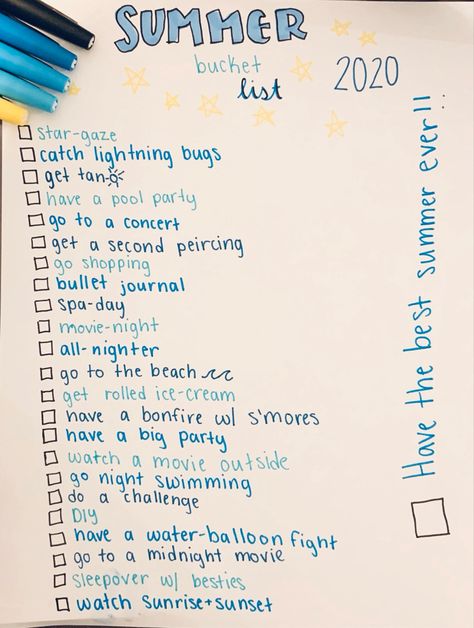 SUMMER
bucket
list
2020
star-gaze
catch lightning bugs
get tan
have a pool party
go to a concert
get a second peircing
go shopping
bullet journal
spa-day
movie-night
all-nighter
go to the beach
get rolled ice-cream
have a bonfire w/ s'mores
have a big party
watch a movie outside
go night swimming
do a challenge
DIY
have a water-balloon fight
go to a midnight movie
sleepover w/ besties
watch sunrise+sunset
Have the best summer ever!!